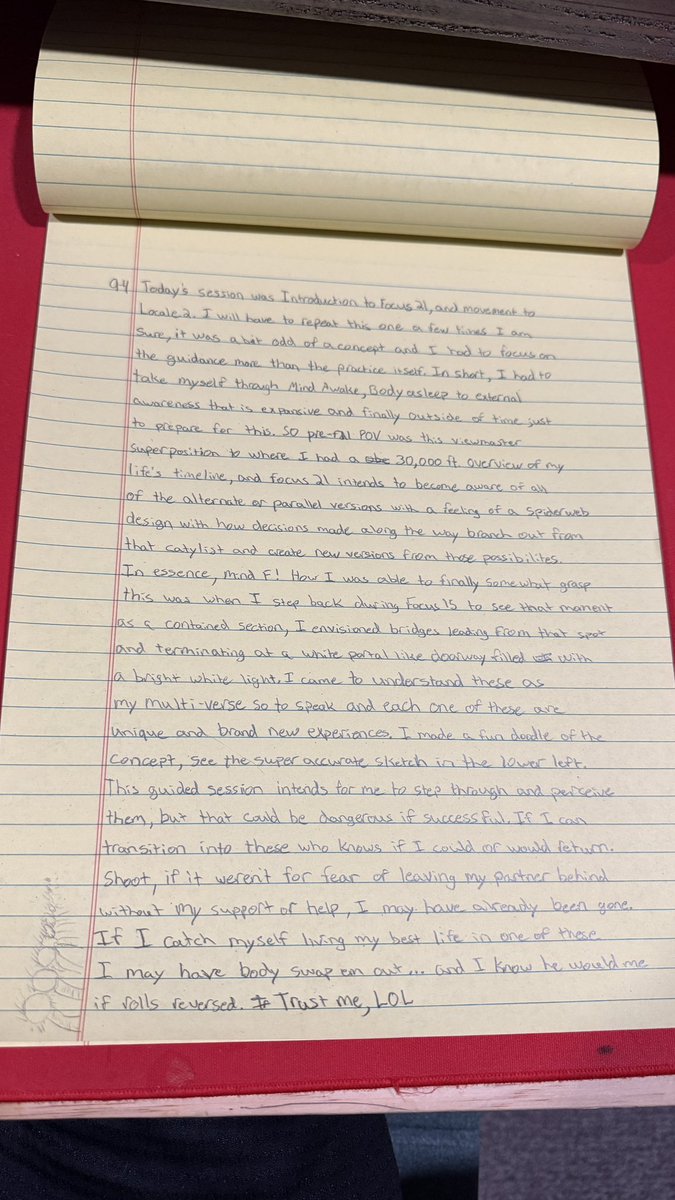 94 Today's session was Introduction to Focus 21, and movement to
Locale 2. I will have to repeat this one a few times I am
sure, it was a bit odd of a concept and I had to focus on
the guidance more than the practice itself. In short, I had to
take myself through Mind Awake, Body asleep to external
awareness that is expansive and finally outside of time just
to prepare for this. SO pre-F21 POV was this viewmaster
superposition to where I had a 30,000 ft. overview of my
life's timeline, and focus 21 intends to become aware of all
of the alternate or parallel versions with a feeling of a spiderweb
design with how decisions made along the way branch out from
that catylist and create new versions from those possibilites.
In essence, mind F! How I was able to finally somewhat grasp
this was when I step back during Focus 15 to see that moment
as a contained section, I envisioned bridges leading from that spot
and terminating at a white portal like doorway filled with
a bright white light. I came to understand these as
my multi-verse so to speak and each one of these are
unique and brand new experiences. I made a fun doodle of the
concept, see the super accurate sketch in the lower left.
This guided session intends for me to step through and perceive
them, but that could be dangerous if successful. If I can
transition into these who knows if I could or would return.
Shoot, if it weren't for fear of leaving my partner behind
without my support or help, I may have already been gone.
If I catch myself living my best life in one of these
I may have body swap em out... and I know he would me
if rolls reversed. Trust me, LOL